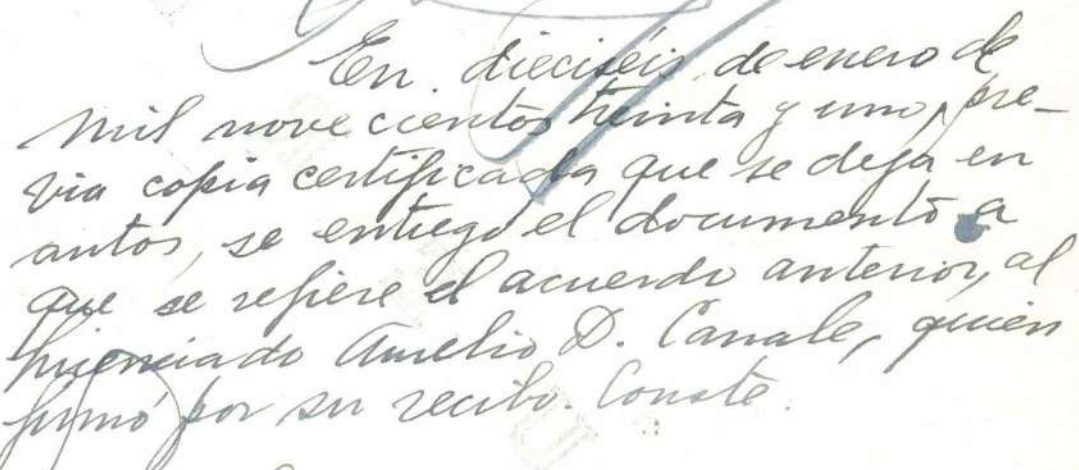 En dieciséis de enero de
mil novecientos treinta y uno, pre-
via copia certificada que se deja en
autos, se entregó el documento a
que se refiere el acuerdo anterior, al
licenciado Aurelio D. Canale, quien
firmó por su recibo. Conste.